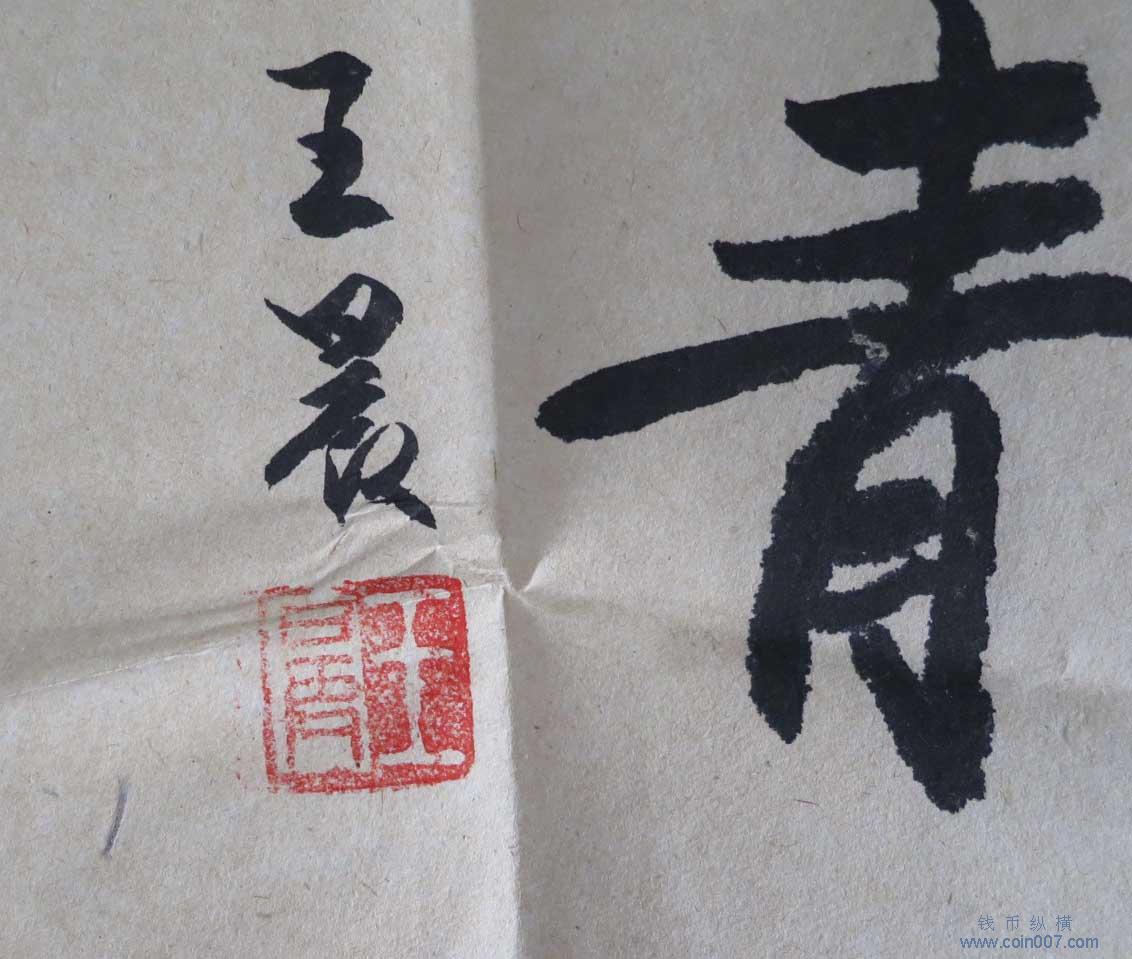 青
王晨
王晨
钱币纵横
www.coin007.com